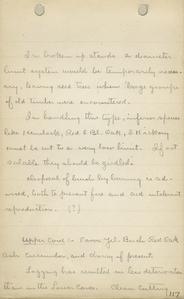 In broken up stands a diameter
limit system would be temporarily neces-
sary, leaving seed trees where large groups
of old timber were encountered.
In handling this type, inferior species
like Hemlock, Red & Bl. Oak, & Hickory
must be cut to a very low limit. If not
salable they should be girdled.
Disposal of brush by burning is ad-
vised, both to prevent fire and aid intolerant
reproduction. (?)
Upper Cove :- Favor Yel. Birch Red Oak
Ash Cucumber, and cherry if present.
Logging has resulted in less deterioration
than in the Lower Coves. Clean Cutting
117